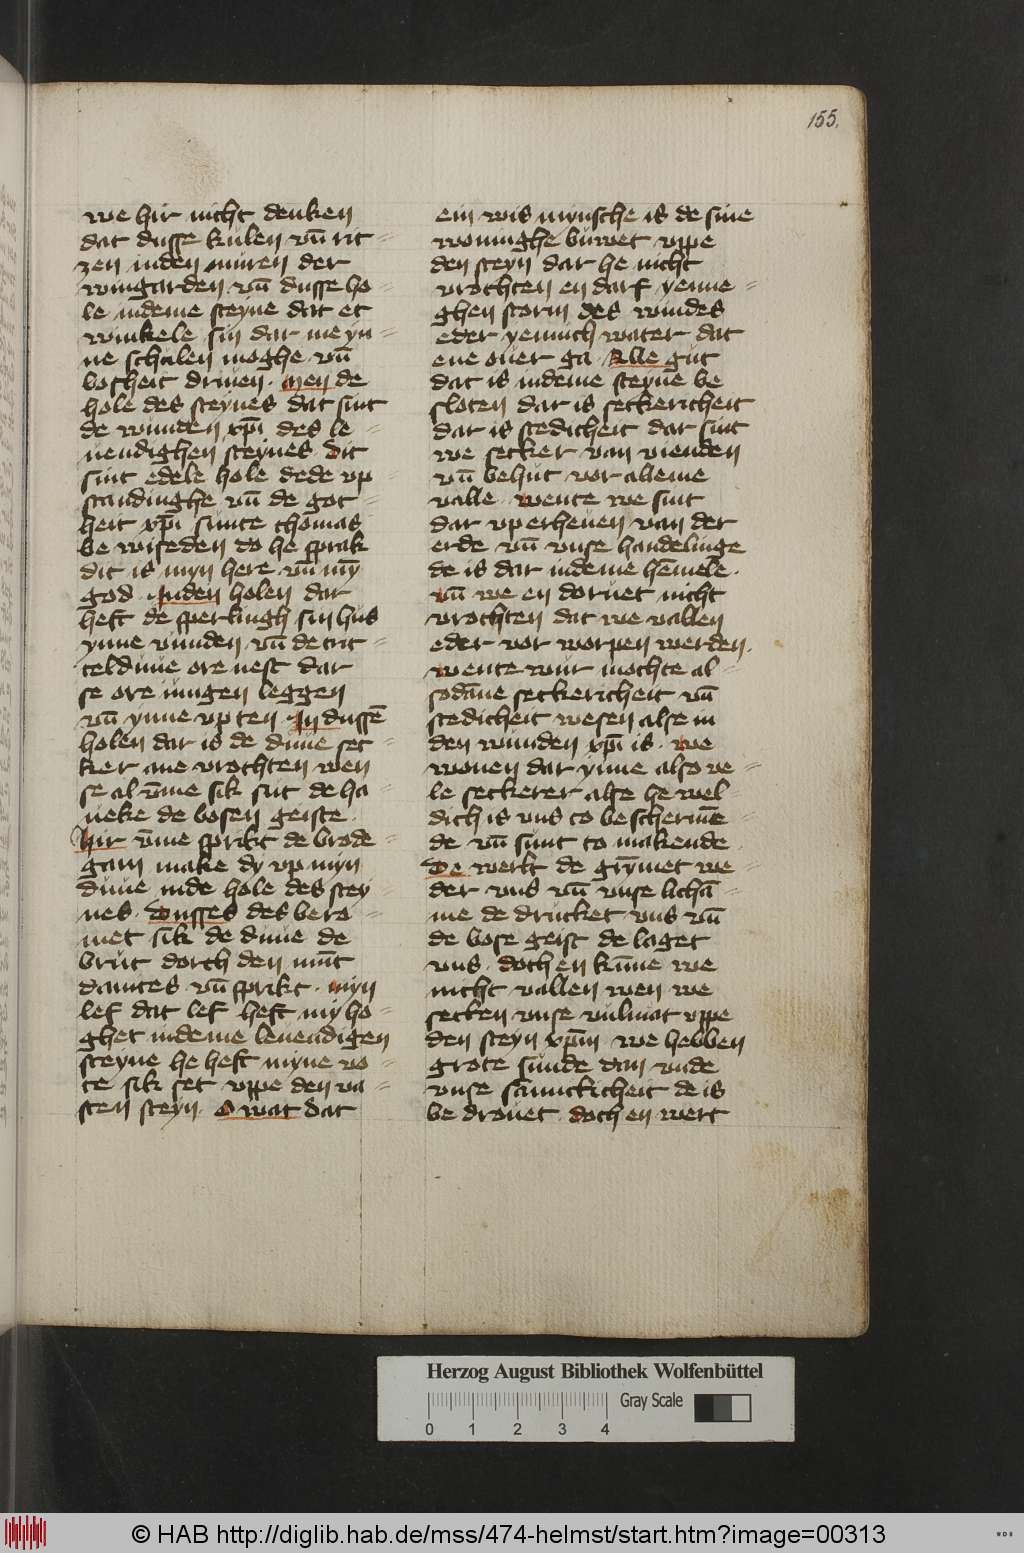 155.
we hir nicht denken
dat dusse kulen vn̄ rit-
zen in den muren der
wingarden vn̄ dusse ho-
le in deme steyne dat et
winkele sin dar me yn-
ne schulen moghe vn̄
bosheit driuen. Men de
hole des steynes dat sint
de wunden xp̄i des le-
uendighen steynes. dit
sint edele hole dede vp-
standinghe vn̄ de got-
heit xp̄i sunte thomas
be wiseden do he sprak
dit is myn here vn̄ mȳ
god. In den holen dar
heft de sperlingh sin hus
ynne vunden vn̄ de tur-
telduue ore nest dar
se ore iungen leggen
vn̄ ynne vp ten. In dussē
holen dar is de duue sec-
ker ane vrochten wen
se al vm̄e sik sut de ha-
ueke de bosen geiste.
Hir vm̄e sprikt de brode-
gam make dy vp myn
duue in de hole des stey-
nes. Dusses des bero-
met sik de duue de
brut dorch den mūt
dauites vn̄ sprikt. myn
lef dat lef heft my ho-
ghet in deme leuendigen
steyne he heft myne vo-
te sik set vppe den va-
sten steyn. O wat dat
ein wis mynsche is de sine
woninghe buwet vppe
den steyn dar he nicht
vrochten en darf yenne-
ghen storm des windes
eder yennich water dat
ene ouer ga. Alle gut
dat is in deme steyne be
sloten dar is seckericheit
dar is stedicheit dar sint
we secker van vienden
vn̄ behut vor alleme
valle. wente we sint
dar vp erheuen van der
erde vn̄ vnse handelinge
de is dar in deme hēmele.
vn̄ we en doruet nicht
vrochten dat we vallen
eder vor worpen werden.
wente wur mochte al-
sodāne seckericheit vn̄
stedicheit wesen alse in
den wunden xp̄i is. we
wonen dar ynne also ve-
le seckerer alse he wel
dich is vns to beschermē
de vn̄ sunt to makende.
De werlt de grȳmet we-
der vns vn̄ vnse lichā-
me de drucket vns vn̄
de bose geist de laget
vns. doch en kun̄e we
nicht vallen wen we
secken vnse vulmat vppe
den steyn xp̄m. we hebben
grote sunde dan vnde
vnse sāmickicheit de is
be drouet. doch en wert
Herzog August Bibliothek Wolfenbüttel
Gray Scale
0 1 2 3 4
© HAB http://diglib.hab.de/mss/474-helmst/start.htm?image=00313